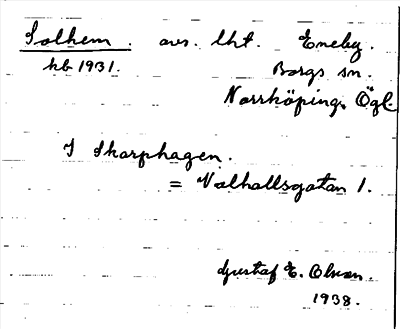 Solhem. avs. lht. Eneby.
kb 1931. Borgs sn.
Norrköping, Ögl.
I Skarphagen.
= Valhallsgatan 1.
Gustaf E. Olsson.
1938.